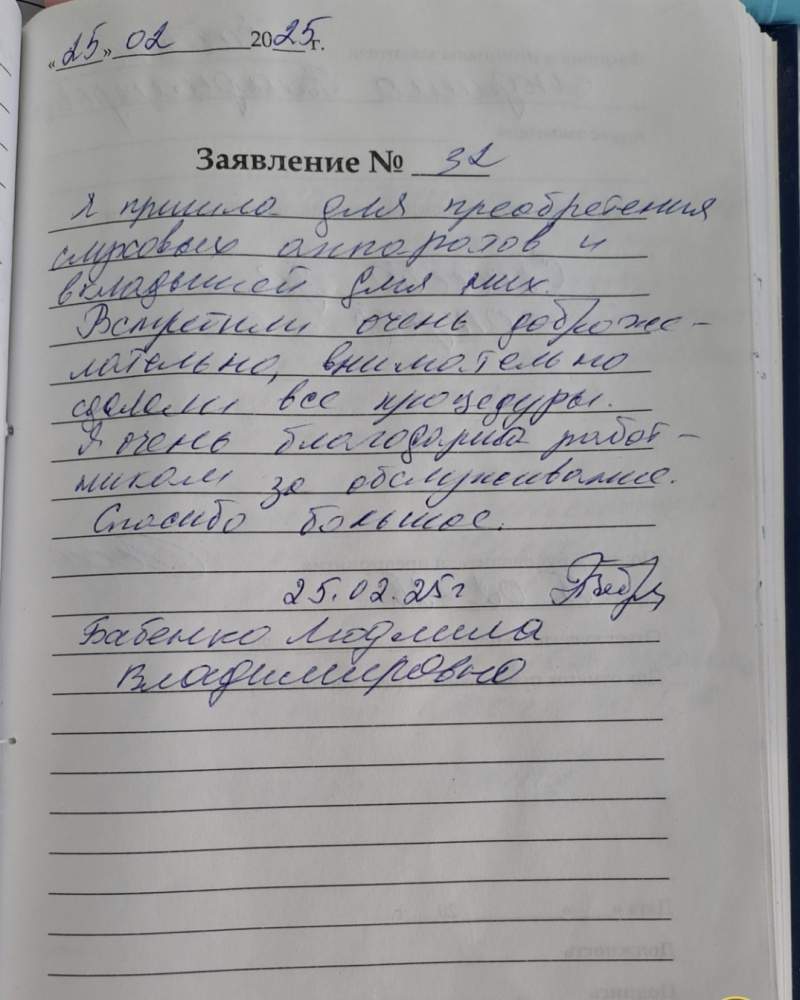 «25» 02 2025 г.
Заявление № 32
Я пришла для преобретения
слуховых аппаратов и
вкладышей для них.
Встретили очень доброже-
лательно, внимательно
сделали все процедуры.
Я очень благодарна работ-
никам за обслуживание.
Спасибо большое.
25.02.25г
Бабенко Людмила
Владимировна